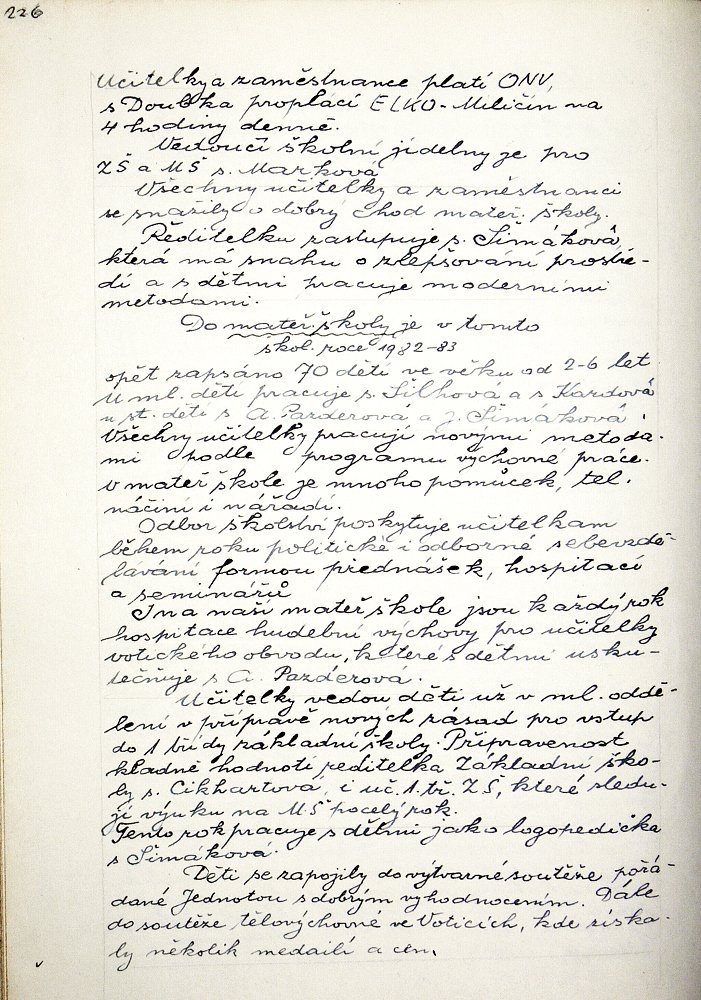 226
Učitelky a zaměstnance platí ONV,
s Doubka proplací ELKO - Miličín na
4 hodiny denně.
Vedoucí školní jídelny je pro
ZŠ a MŠ s. Marková
Všechny učitelky a zaměstnanci
se snažily o dobrý chod mateř. školy.
Ředitelku zastupuje s. Šimáková,
která má snahu o zlepšování prostře-
dí a s dětmi pracuje moderními
metodami.
Do mateř. školy je v tomto
škol. roce 1982-83
opět zapsáno 70 dětí ve věku od 2-6 let
U ml. dětí pracuje s. Šilhová a s. Kazdová
u st. dětí s A. Pazderová a J. Šimáková.
Všechny učitelky pracují novými metoda-
mi podle programu výchovné práce.
V mateř škole je mnoho pomůcek, tel.
náčiní i nářadí.
Odbor školství poskytuje učitelkám
během roku politické i odborné sebevzdě-
lávání formou přednášek, hospitací
a seminářů
I na naší mateř škole jsou každý rok
hospitace hudební výchovy pro učitelky
votického obvodu, které s dětmi usku-
tečňuje s A. Pazderova.
Učitelky vedou děti už v ml. oddě-
lení v přípravě nových zásad pro vstup
do 1 třídy základní školy. Připravenost
kladně hodnotí ředitelka Základní ško-
ly s. Cikhartova, i uč. 1. tř. ZŠ, které sledu-
jí výuku na MŠ po celý rok.
Tento rok pracuje s dětmi jako logopedička
s Šimáková.
Děti se zapojily do výtvarné soutěže pořá-
dané Jednotou s dobrým vyhodnocením. Dále
do soutěže tělovýchovné ve Voticích, kde získa-
ly několik medailí a cen.